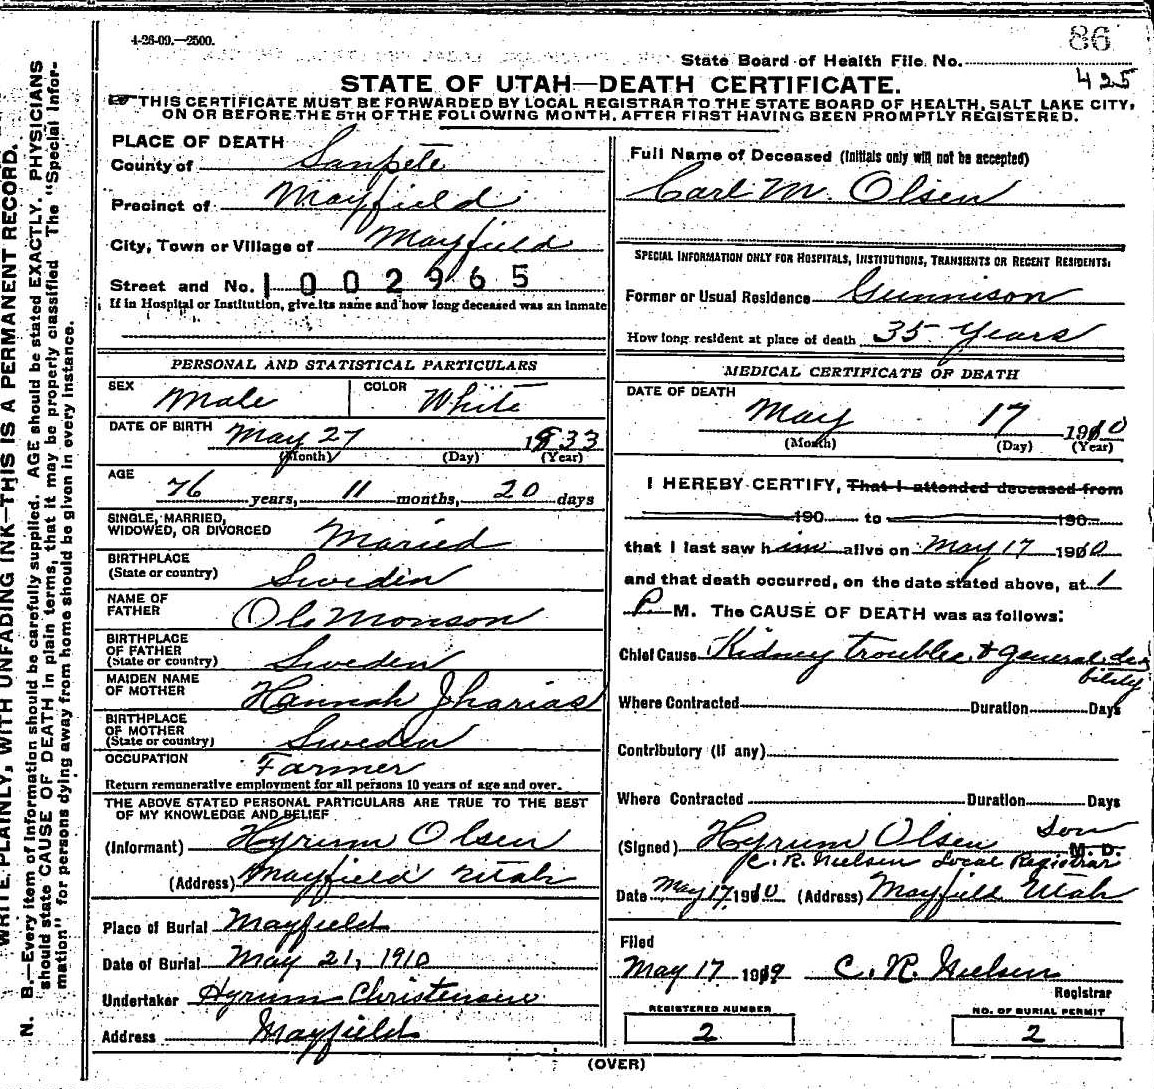 4-26-09.—2500.
86
State Board of Health File No.
425
STATE OF UTAH—DEATH CERTIFICATE.
THIS CERTIFICATE MUST BE FORWARDED BY LOCAL REGISTRAR TO THE STATE BOARD OF HEALTH, SALT LAKE CITY,
ON OR BEFORE THE 5TH OF THE FOLLOWING MONTH, AFTER FIRST HAVING BEEN PROMPTLY REGISTERED.
WRITE PLAINLY, WITH UNFADING INK—THIS IS A PERMANENT RECORD.
N. B.—Every item of information should be carefully supplied. AGE should be stated EXACTLY. PHYSICIANS
should state CAUSE OF DEATH in plain terms, that it may be properly classified. The "Special Infor-
mation" for persons dying away from home should be given in every instance.
PLACE OF DEATH
County of Sanpete
Precinct of Mayfield
City, Town or Village of Mayfield
Street and No. 1002965
If in Hospital or Institution, give its name and how long deceased was an inmate
PERSONAL AND STATISTICAL PARTICULARS
SEX Male COLOR White
DATE OF BIRTH May 27 1833
(Month) (Day) (Year)
AGE
76 years, 11 months, 20 days
SINGLE, MARRIED,
WIDOWED, OR DIVORCED Maried
BIRTHPLACE
(State or country) Sweden
NAME OF
FATHER Ole Monson
BIRTHPLACE
OF FATHER
(State or country) Sweden
MAIDEN NAME
OF MOTHER Hannah
BIRTHPLACE
OF MOTHER
(State or country) Sweden
OCCUPATION Farmer
Return remunerative employment for all persons 10 years of age and over.
THE ABOVE STATED PERSONAL PARTICULARS ARE TRUE TO THE BEST
OF MY KNOWLEDGE AND BELIEF
(Informant) Hyrum Olsen
(Address) Mayfield Utah
Place of Burial Mayfield
Date of Burial May 21, 1910
Undertaker Hyrum Christensen
Address Mayfield
Full Name of Deceased (Initials only will not be accepted)
Carl M. Olsen
SPECIAL INFORMATION ONLY FOR HOSPITALS, INSTITUTIONS, TRANSIENTS OR RECENT RESIDENTS:
Former or Usual Residence Gunnison
How long resident at place of death 35 Years
MEDICAL CERTIFICATE OF DEATH
DATE OF DEATH
May 17 1910
(Month) (Day) (Year)
I HEREBY CERTIFY, That I attended deceased from
190 to 190
that I last saw him alive on May 17 1910
and that death occurred, on the date stated above, at 1
P. M. The CAUSE OF DEATH was as follows:
Chief Cause Kidney trouble & general de
bility
Where Contracted Duration Days
Contributory (if any)
Where Contracted Duration Days
(Signed) Hyrum Olsen Son M. D.
C. R. Nielsen Local Registrar
Date May 17, 1910 (Address) Mayfield Utah
Filed
May 17 1919 C. R. Nielsen
Registrar
REGISTERED NUMBER
2
NO. OF BURIAL PERMIT
2
(OVER)